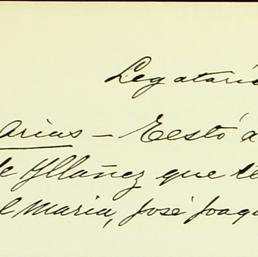 Legatari
Arias — Testó a
de Ylláñez que te
l María, José Joaqu